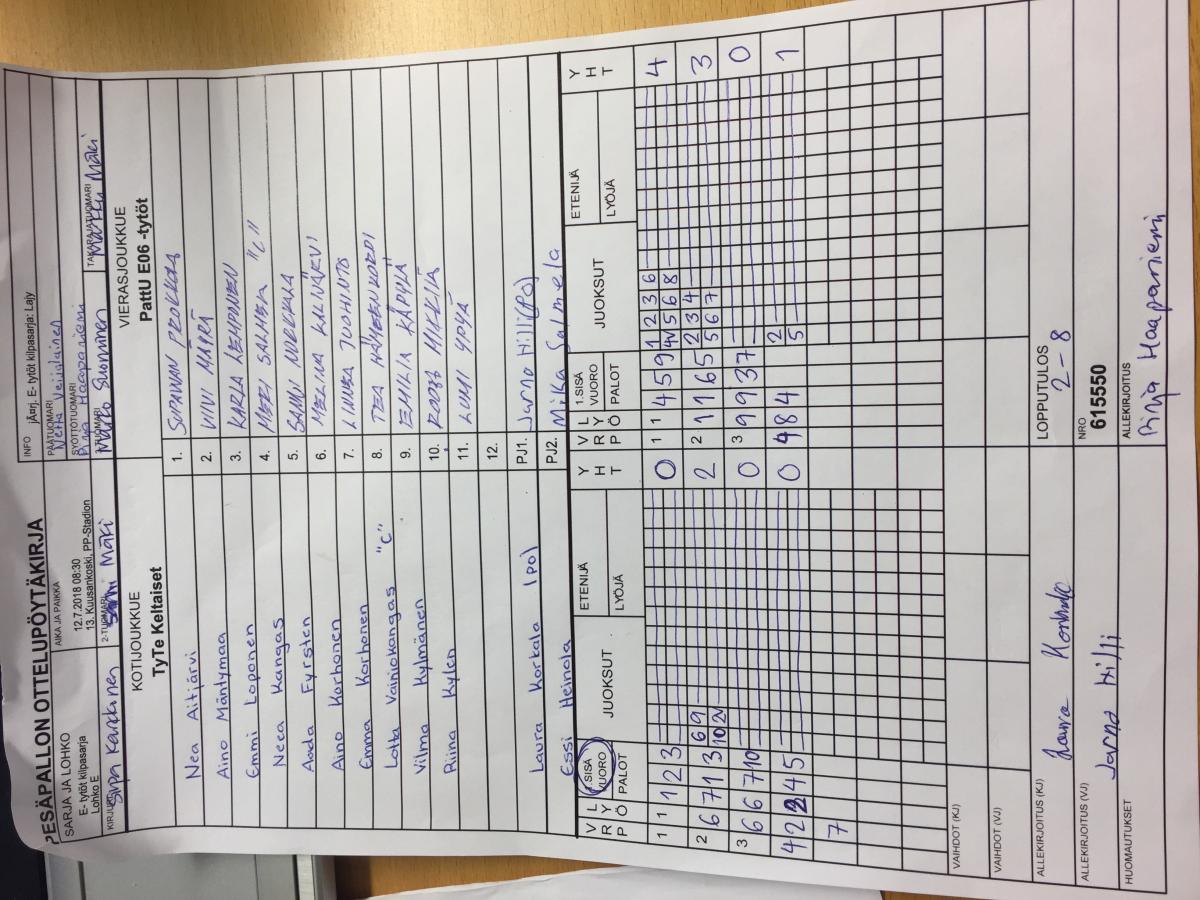 PESÄPALLON OTTELUPÖYTÄKIRJA
SARJA JA LOHKO
E- tytöt kilpasarja
Lohko E
AIKA JA PAIKKA
12.7.2018 08:30
13. Kuusankoski, PP-Stadion
INFO jÄnrj. E- tytöt kilpasarja: Lajy
PÄÄTUOMARI
Netta Veijalainen
SYÖTTÖTUOMARI
Pinja Haapaniemi
KIRJURI Karkinen
2-TUOMARI Mäki
3-TUOMARI Suominen
TAKARAJATUOMARI
Mäki
KOTIJOUKKUE
TyTe Keltaiset
VIERASJOUKKUE
PattU E06 -tytöt
Nea Aitjärvi
1.
Aino Mäntymaa
2. VIVI MÄÄRÄ
Emmi Loponen
3. KARLA LEHMONEN
Neea Kangas
4. MERI SALMELA "C"
Aada Fyrsten
5. SANNI
Aino Korhonen
6. MELINA KALLIOJÄRVI
Emma Korhonen
7. LINNEA JUOHINTO
Lotta Vainiokangas "C"
8. TEA HÄMEENKORPI
Vilma Kylmänen
9. EMILIA KÄPYLÄ
Riina Kylen
10.
11. LUMI
12.
Laura Korkala (po)
PJ1. Jarno Hilli (po)
Essi Heinola
PJ2. Mika Salmela
V R P L Y Ö 1.SISÄ VUORO PALOT JUOKSUT ETENIJÄ LYÖJÄ Y H T
V R P L Y Ö 1.SISÄ VUORO PALOT JUOKSUT ETENIJÄ LYÖJÄ Y H T
1 1 1 2 3 0
1 1 4 5 9 1 2 3 6 4
4V 5 6 8
2 6 7 1 3 6 9 2
10 2V
2 1 1 6 5 2 3 4 3
5 6 7
3 6 6 7 10 0
3 9 9 3 7 0
4 2 2 4 5 0
4 8 4 2 1
5
7
VAIHDOT (KJ)
VAIHDOT (VJ)
LOPPUTULOS
2-8
ALLEKIRJOITUS (KJ) Laura
ALLEKIRJOITUS (VJ) Jarno Hilli
NRO
615550
HUOMAUTUKSET
ALLEKIRJOITUS
Pinja Haapaniemi